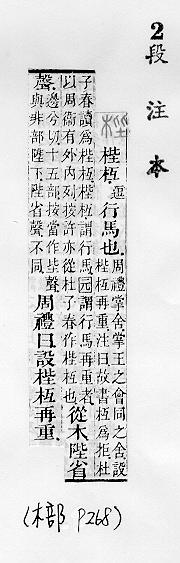 2段注本
梐
梐枑。逗行馬也。周禮掌舍掌王之會同之舍設
梐枑再重注曰故書枑爲拒杜
子春讀爲梐枑梐枑謂行馬囩謂行馬再重者
以周衞有外內列按許亦從杜子春作梐枑也從木陛省
聲。邊兮切十五部按當作坒聲
與非部陛下陛省聲不同周禮曰設梐枑再重。
(木部 P268)